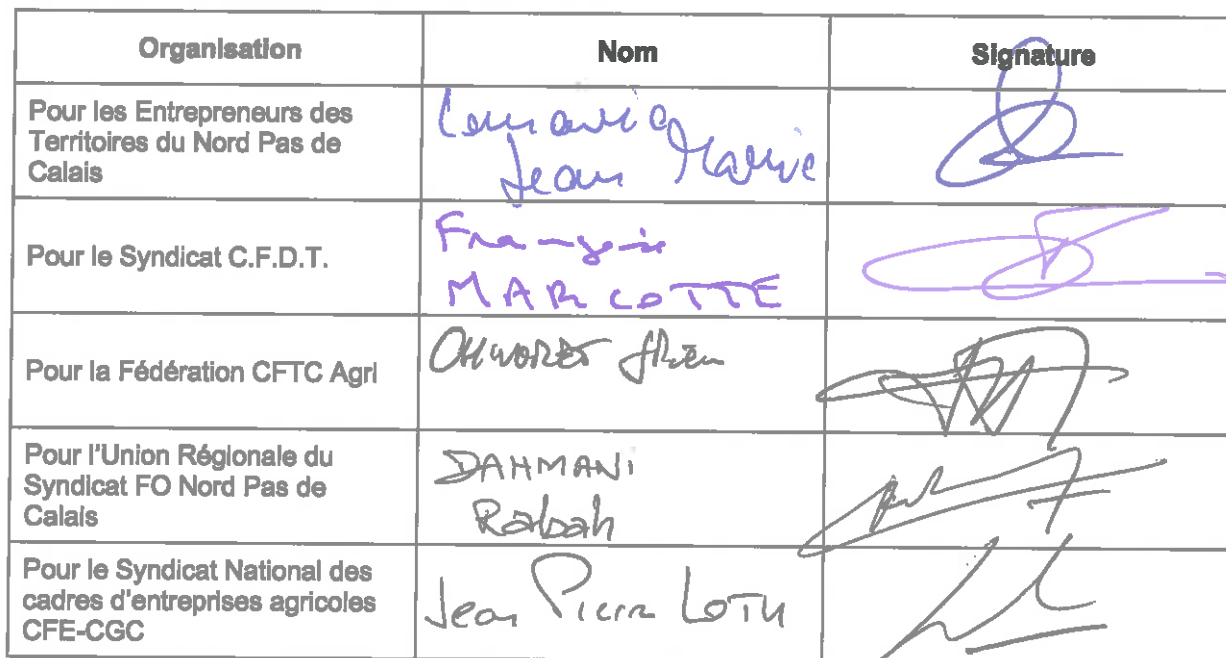 Organisation
Nom
Signature
Pour les Entrepreneurs des
Territoires du Nord Pas de
Calais
Jean Marie
Pour le Syndicat C.F.D.T.
François
MARCOTTE
Pour la Fédération CFTC Agri
Pour l'Union Régionale du
Syndicat FO Nord Pas de
Calais
DAHMANI
Rabah
Pour le Syndicat National des
cadres d'entreprises agricoles
CFE-CGC
Jean Pierre LOTH